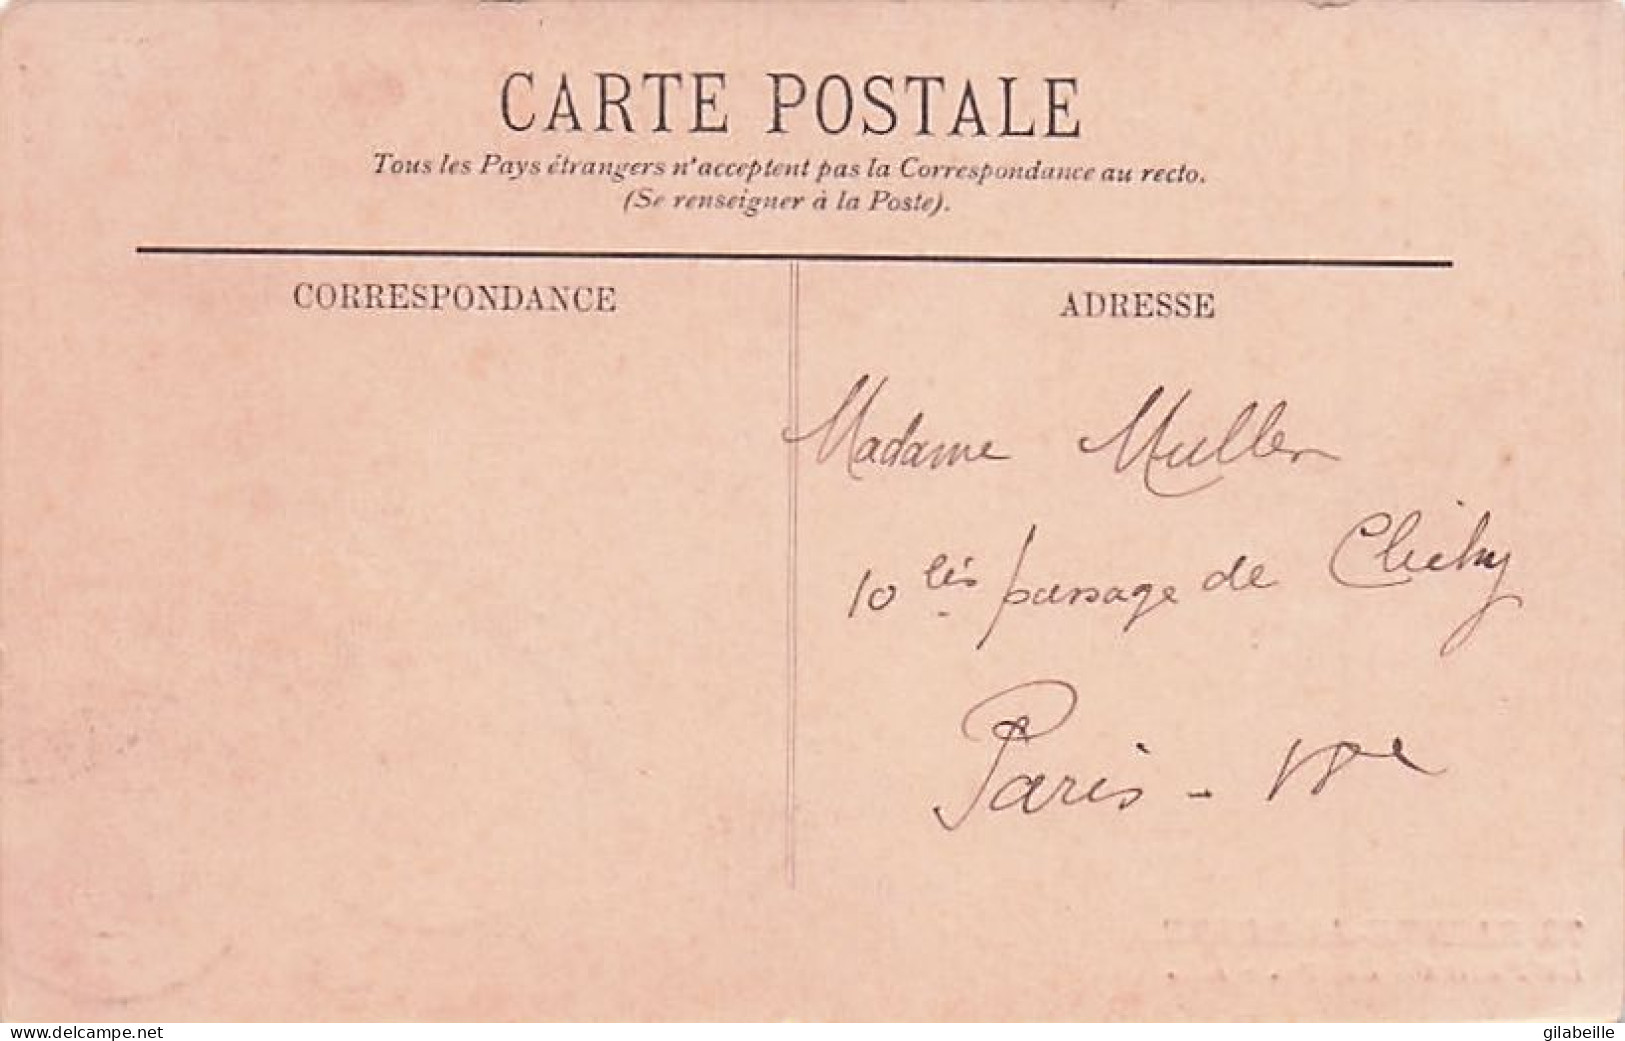 CARTE POSTALE
Tous les Pays étrangers n'acceptent pas la Correspondance au recto.
(Se renseigner à la Poste).
CORRESPONDANCE
ADRESSE
Madame Muller
10 bis passage de Clichy
Paris -
www.delcampe.net
gilabeille